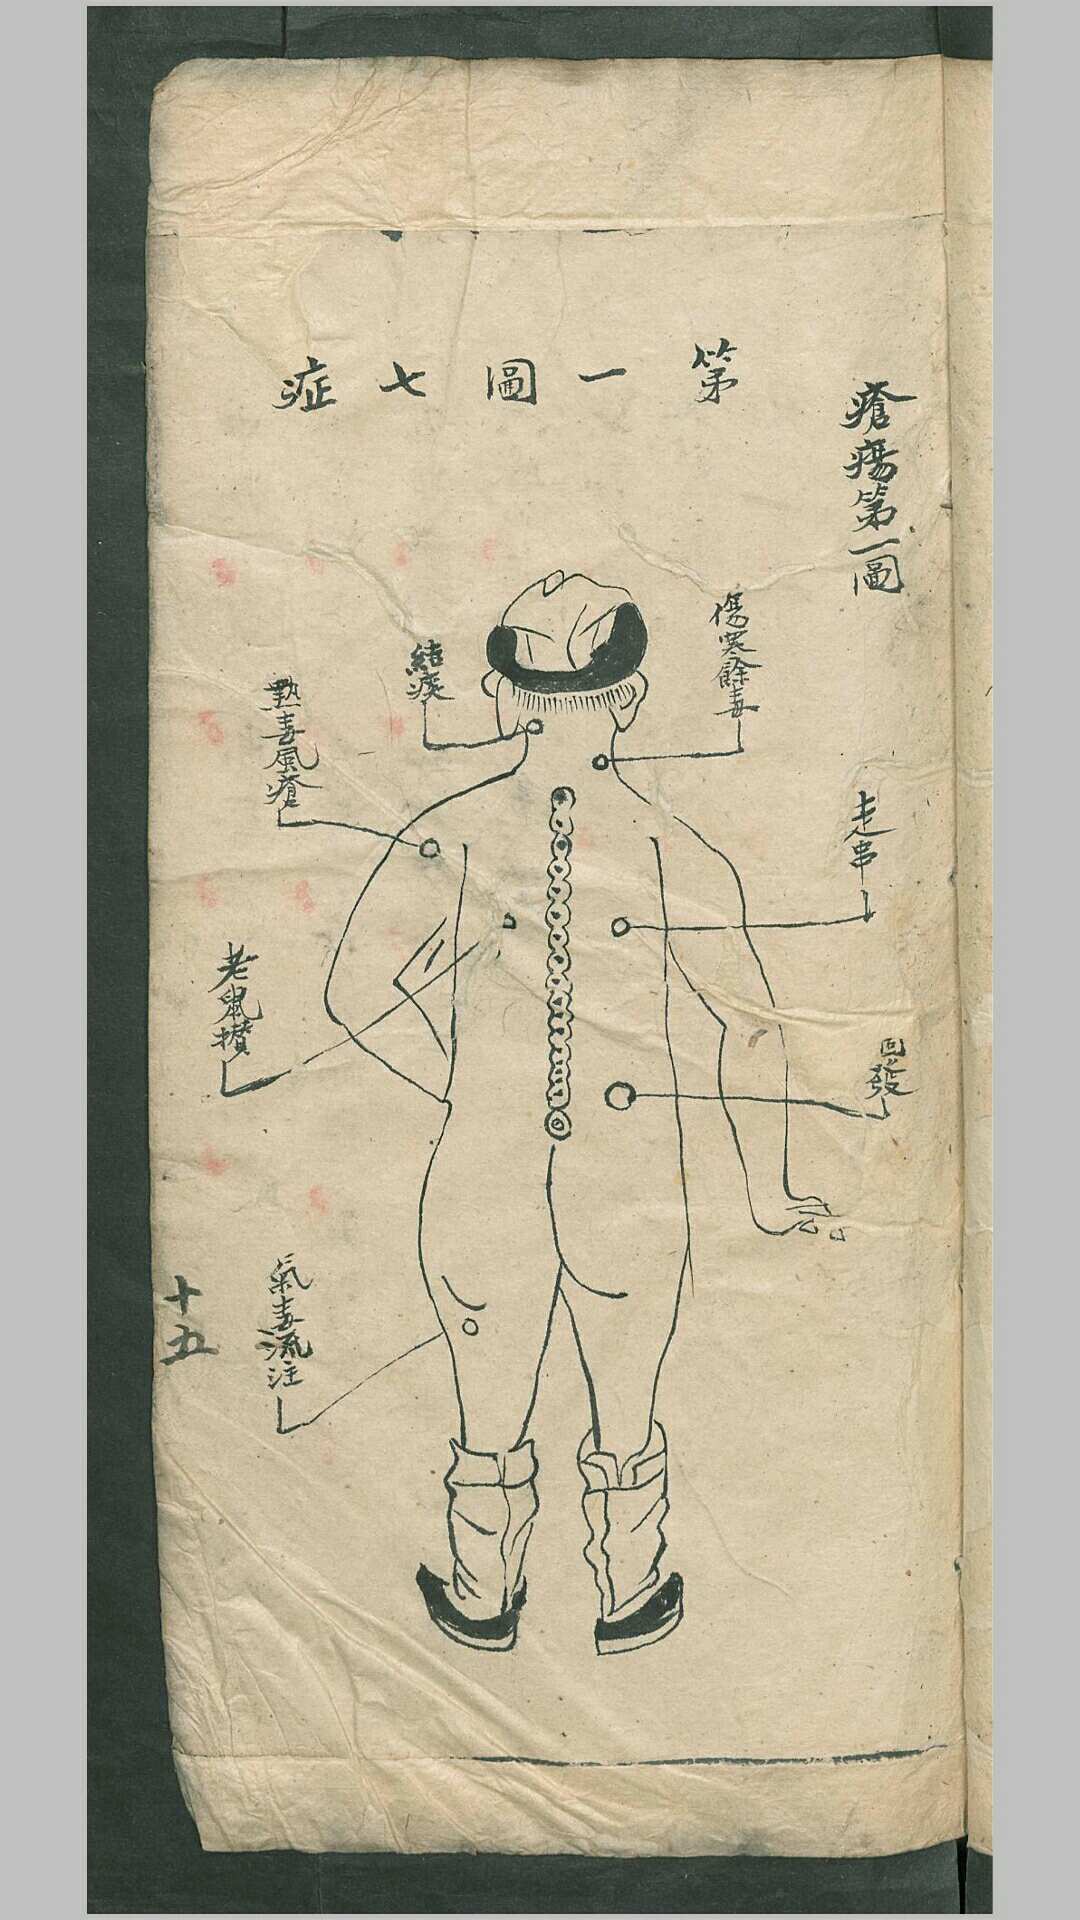 瘡瘍第一圖
第一圖七症
傷寒餘毒
走串
回發
結痰
熱毒風瘡
老鼠攢
氣毒流注
十五